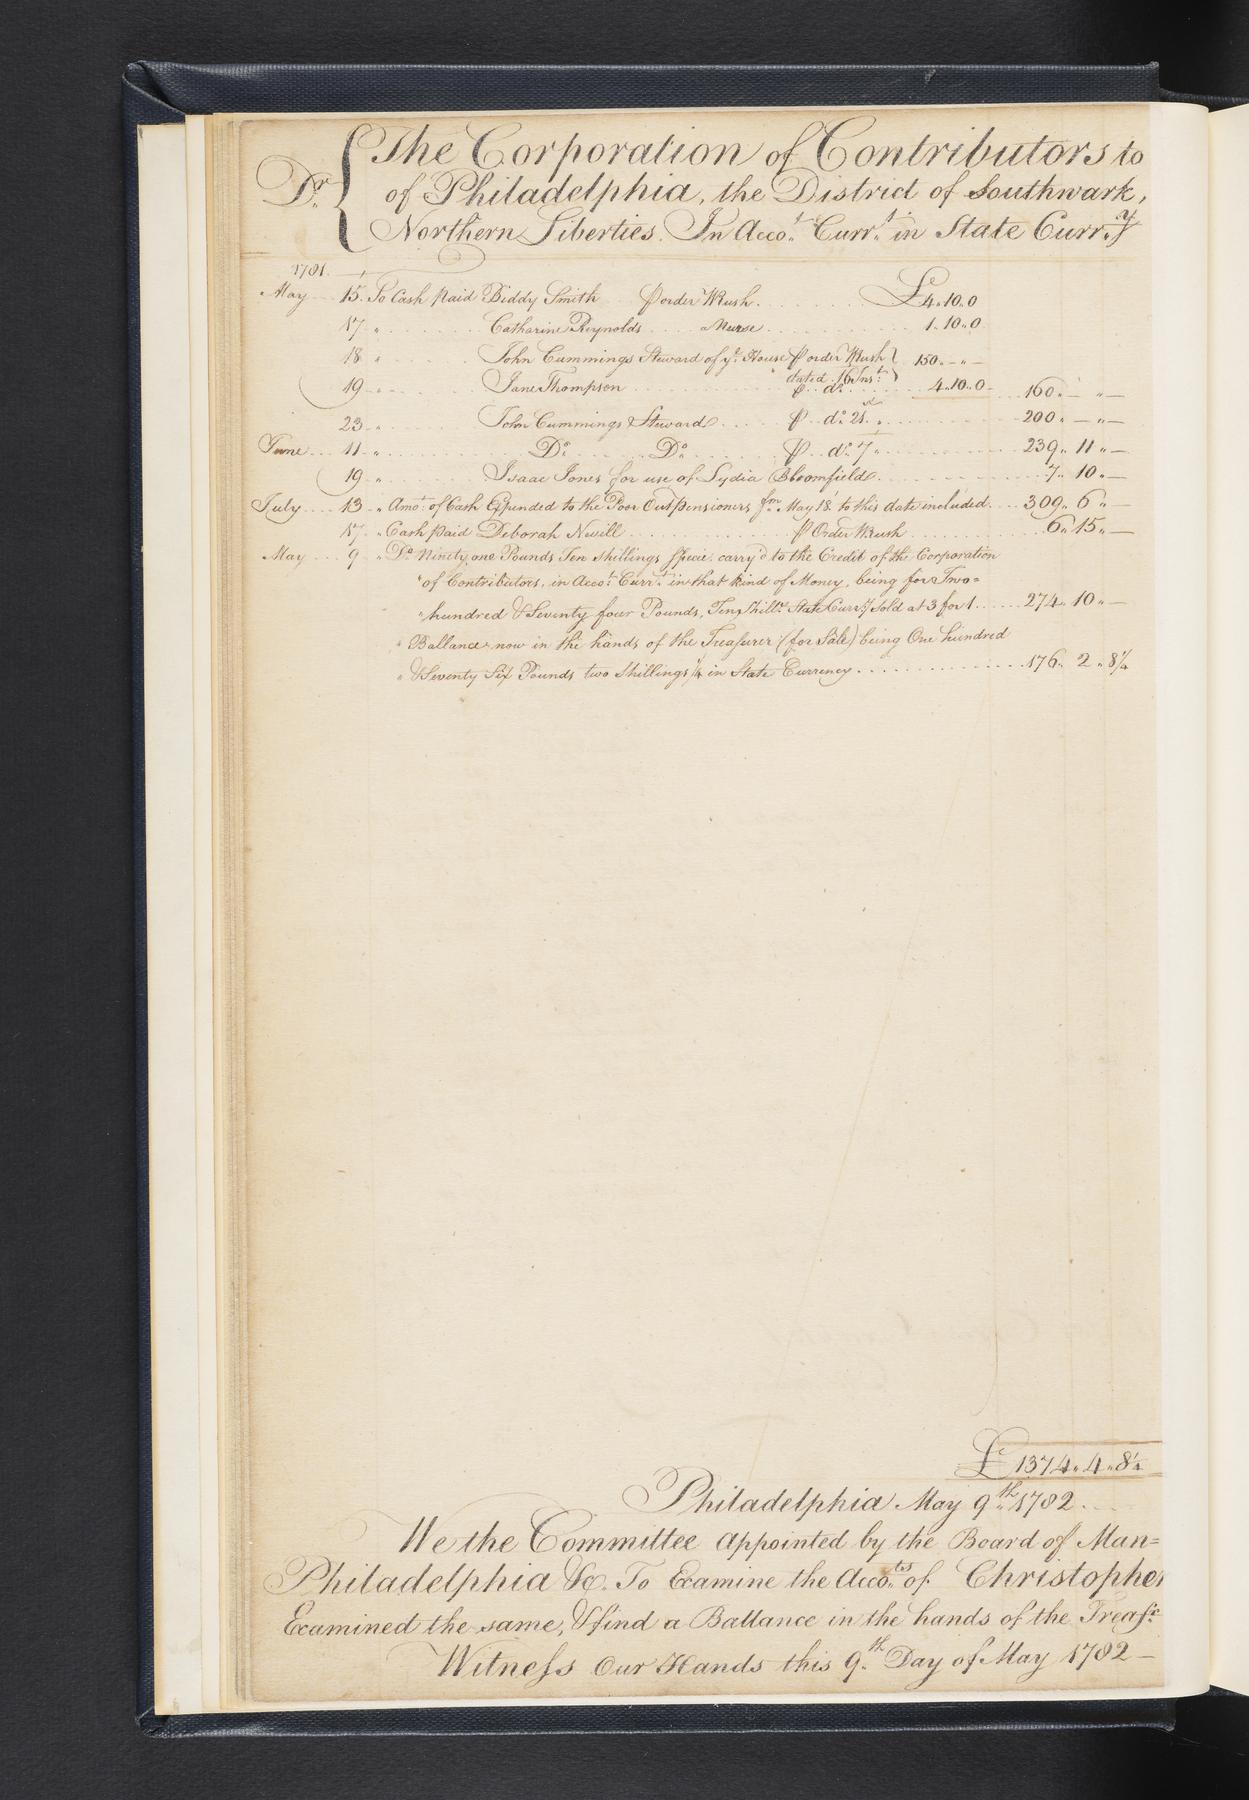 Dr. { The Corporation of Contributors to
of Philadelphia, the District of Southwark,
Northern Liberties. In Acco.t Curr.t in State Curr.y
1781.
May 15. To Cash paid Biddy Smith ⅌ order W Rush £4.. 10.. 0
17 " Catharine Reynolds a Nurse 1.. 10.. 0
18 " John Cummings Steward of ye. House ⅌ order W Rush } 150.. — " —
dated 16 Inst. }
19 " Jane Thompson ⅌ do. 4.. 10.. 0 160.. — " —
23 " John Cummings Steward ⅌ do. 21st " 200.. — " —
June 11 " Do. Do. ⅌ do. 7 " 239.. 11 " —
19 " Isaac Jones for use of Lydia Bloomfield 7.. 10 " —
July 13 " Amot. of Cash Expended to the Poor Out pensioners fm. May 18. to this date included 309.. 6 " —
17 " Cash paid Deborah Nevill ⅌ Order W Rush 6.. 15 " —
May 9 " Do. Ninety one Pounds Ten Shillings Specie, carry'd to the Credit of the Corporation
" of Contributors, in Acco.t Curr.t in that kind of Money, being for Two=
" hundred & Seventy four Pounds, Ten Shills. State Curr.y Sold at 3 for 1 274.. 10 " —
" Ballance now in the hands of the Treasurer (for Sale) being One hundred
" & Seventy Six Pounds two Shillings ¼ in State Currency 176.. 2 " 8¼
£ 1374.. 4.. 8¼
Philadelphia May 9.th 1782
We the Committee appointed by the Board of Man=
Philadelphia &c. To Examine the Acco.ts of Christopher
Examined the same, & find a Ballance in the hands of the Treasr.
Witness Our Hands this 9.th Day of May 1782 —